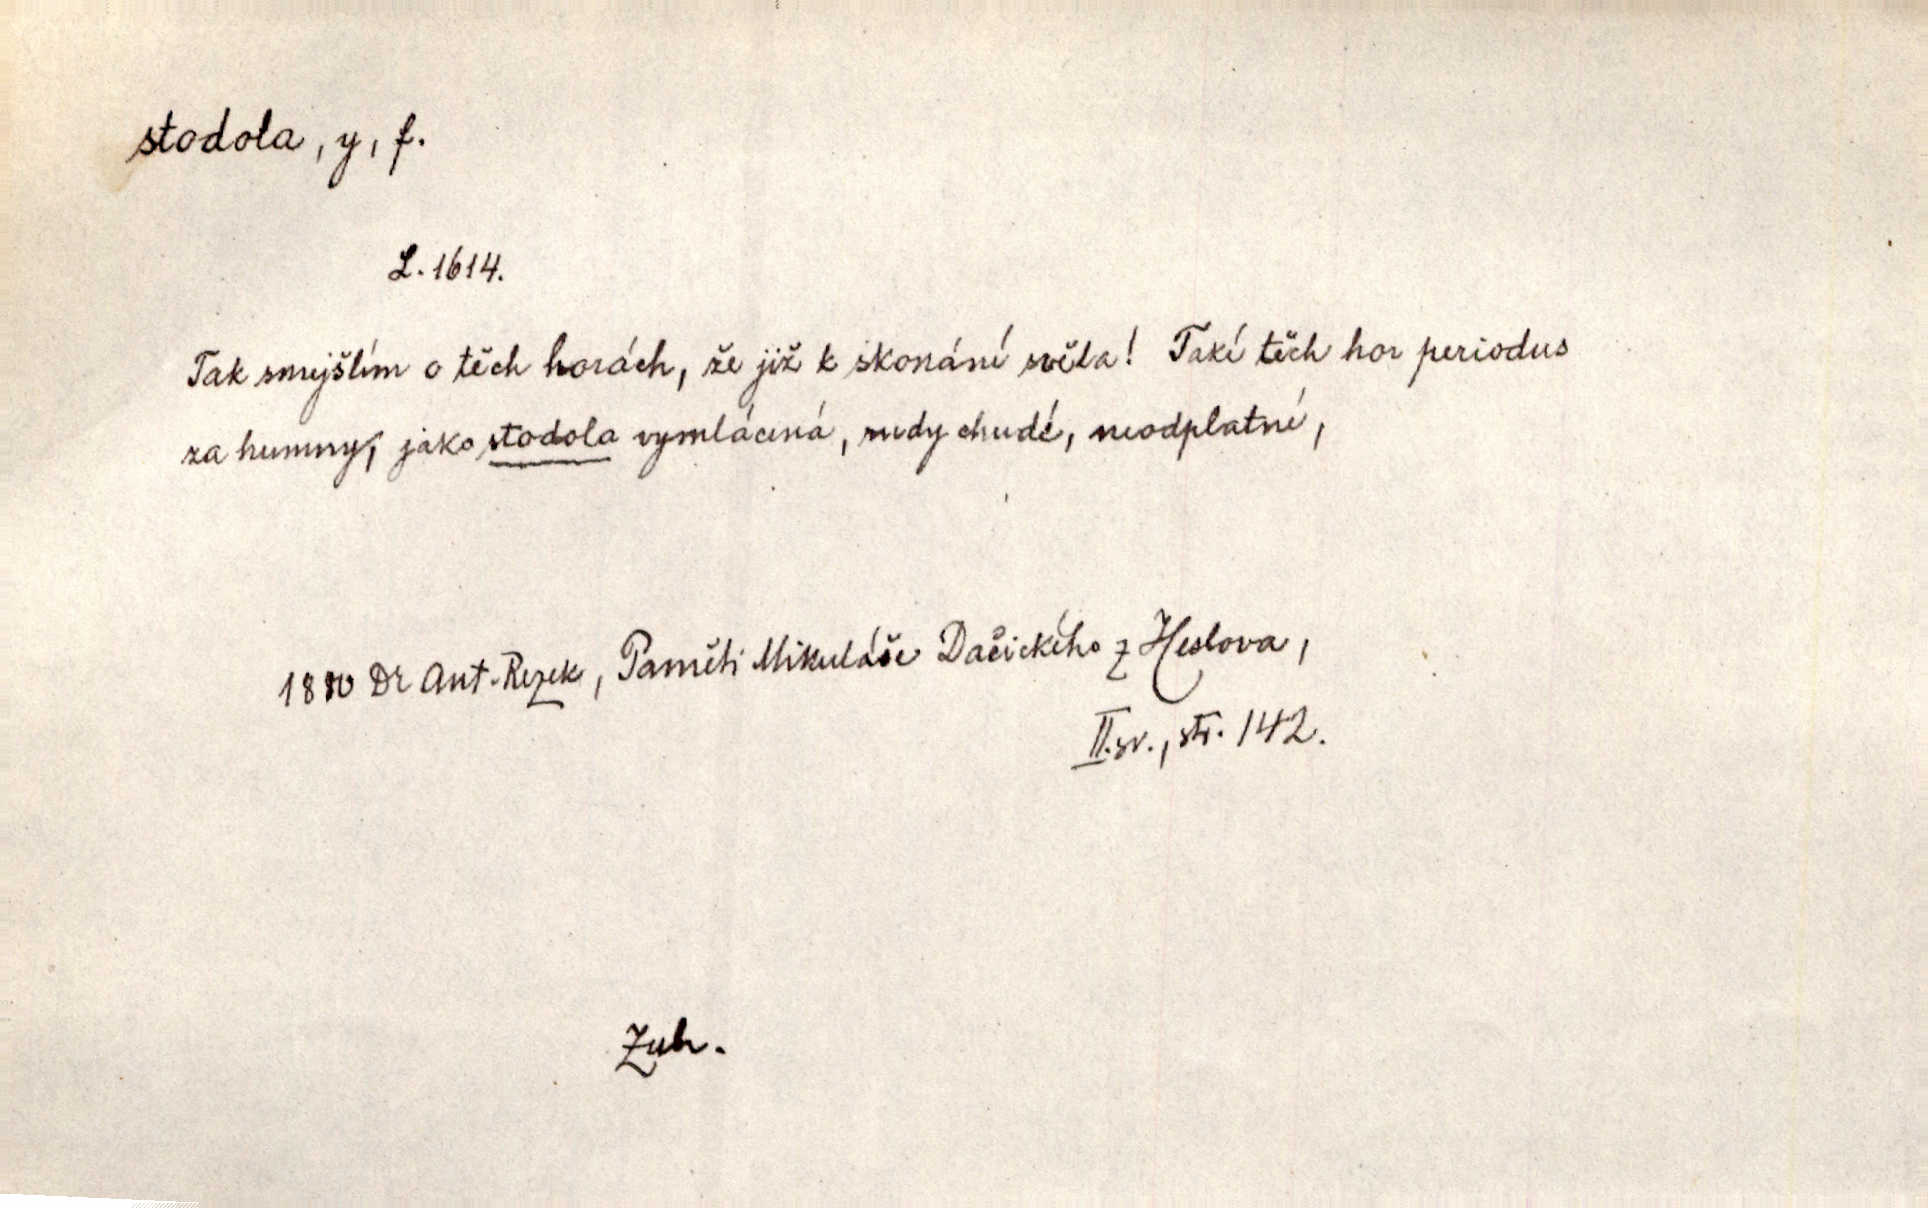 stodola, y, f.
L. 1614.
Tak smejšlím o těch horách, že již k skonání světa! Takí těch hor periodus
za humny, jako stodola vymlácená, rudy chudé, neodplatné,
1880 Dr Ant. Rezek, Paměti Mikuláše Dačického z Heslova,
II. sv., str. 142.
Zub.